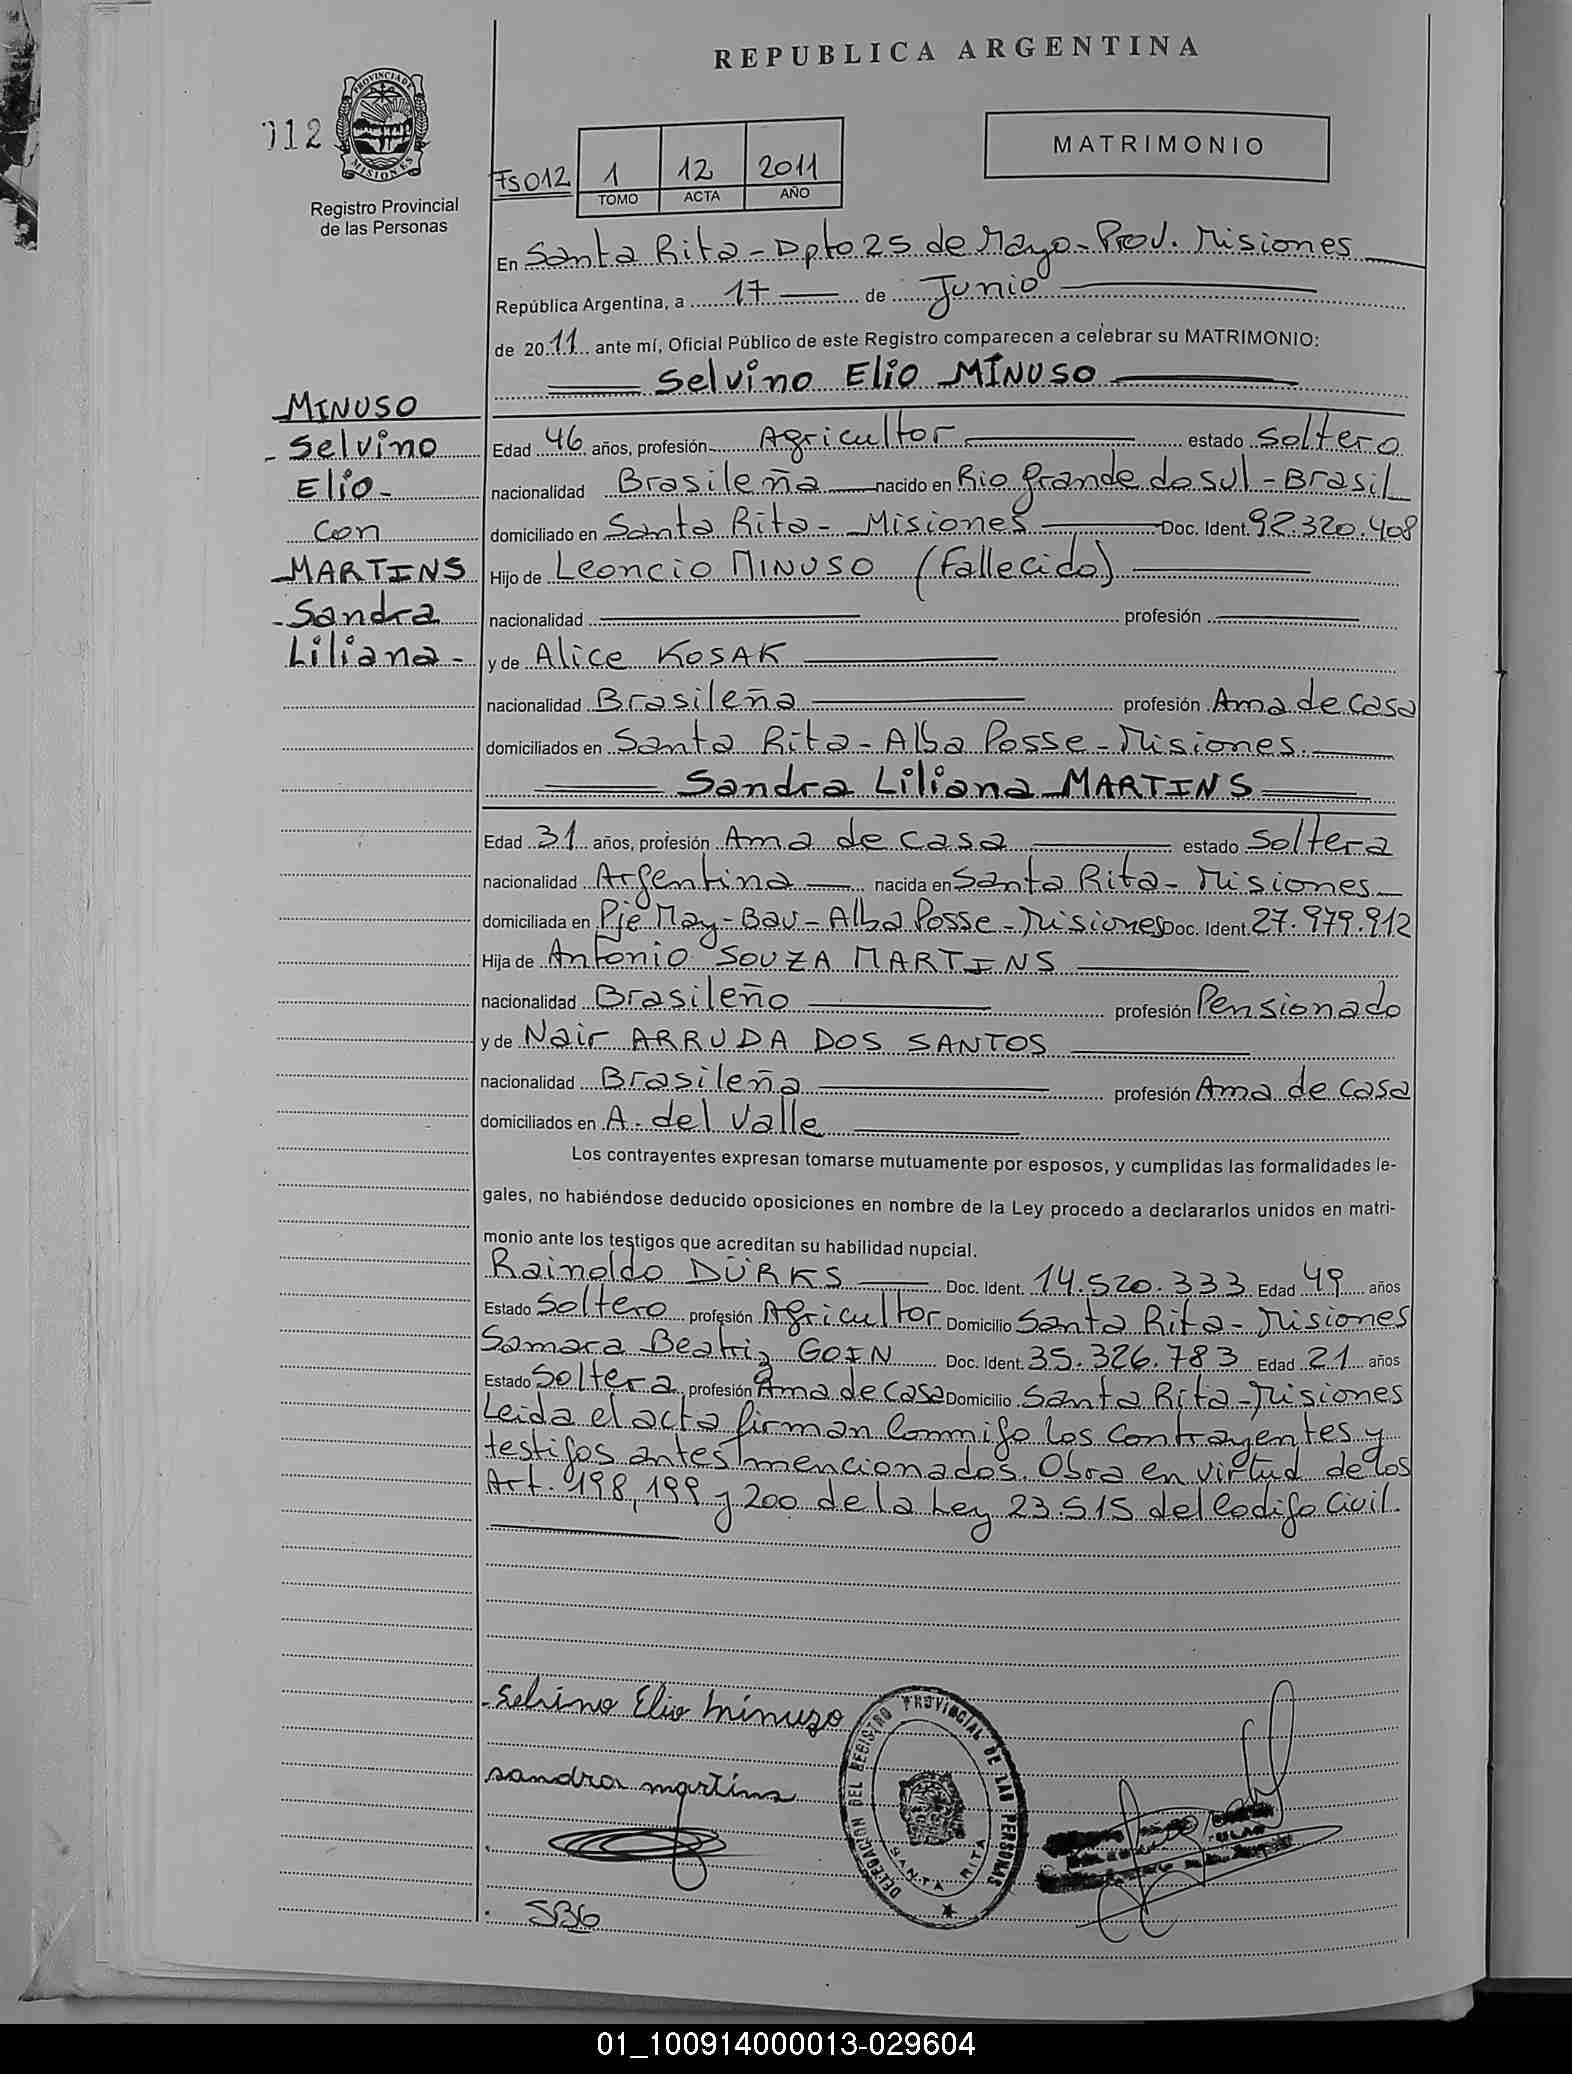 REPUBLICA ARGENTINA
012
PROVINCIA DE MISIONES
Registro Provincial
de las Personas
MATRIMONIO
Fs 012 1 12 2011
TOMO ACTA AÑO
En Santa Rita - Dpto 25 de Mayo - Prov. Misiones
República Argentina, a 17 de Junio
de 2011 ante mí, Oficial Público de este Registro comparecen a celebrar su MATRIMONIO:
Selvino Elio MINUSO
MINUSO
Selvino
Elio-
con
MARTINS
-Sandra
Liliana-
Edad 46 años, profesión Agricultor estado Soltero
nacionalidad Brasileña nacido en Rio grande do sul - Brasil
domiciliado en Santa Rita - Misiones Doc. Ident. 92.320.408
Hijo de Leoncio MINUSO (Fallecido)
nacionalidad profesión
y de Alice KOSAK
nacionalidad Brasileña profesión Ama de casa
domiciliados en Santa Rita - Alba Posse - Misiones.
Sandra Liliana MARTINS
Edad 31 años, profesión Ama de casa estado Soltera
nacionalidad Argentina nacida en Santa Rita - Misiones
domiciliada en Pje May-Bau - Alba Posse - Misiones Doc. Ident. 27.979.912
Hija de Antonio SOUZA MARTINS
nacionalidad Brasileño profesión Pensionado
y de Nair ARRUDA DOS SANTOS
nacionalidad Brasileña profesión Ama de casa
domiciliados en A. del Valle
Los contrayentes expresan tomarse mutuamente por esposos, y cumplidas las formalidades le-
gales, no habiéndose deducido oposiciones en nombre de la Ley procedo a declararlos unidos en matri-
monio ante los testigos que acreditan su habilidad nupcial.
Rainoldo DÜRKS Doc. Ident. 14.520.333 Edad 49 años
Estado Soltero profesión Agricultor Domicilio Santa Rita - Misiones
Samara Beatriz GOIN Doc. Ident. 35.326.783 Edad 21 años
Estado Soltera profesión Ama de casa Domicilio Santa Rita - Misiones
Leida el acta firman Conmigo los Contrayentes y
testigos antes mencionados. Obra en virtud de los
Art. 198, 199 y 200 de la Ley 23.515 del Codigo Civil.
Selvino Elio Minuzo
sandra martins
SBG
DELEGACION DEL REGISTRO PROVINCIAL DE LAS PERSONAS
SANTA RITA
01_100914000013-029604